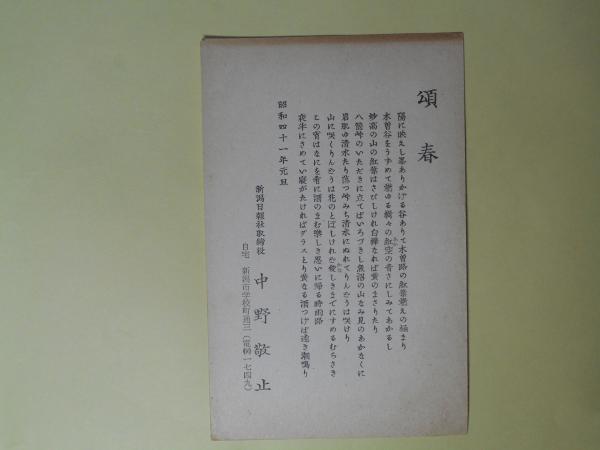 頌春
陽に映えし墨ありかげる谷ありて木曽路の紅葉燃えの極まり
木曽谷をうずめて燃ゆる樹々の紅空の青さにしみてあかるし
妙高の山の紅葉はさびしけれ白樺なれば黄のまさりたり
八箇峠のいただきに立てばいろづきし魚沼の山なみ見のあかなくに
岩肌ゆ清水したり落つ峠みち清水にぬれてりんどうは咲けり
山に咲くりんどうは花のとぼしけれど愛しきまでにすめるむらさき
この宵はなにを肴に酒のまむ楽しき思いに帰る時雨路
夜半にさめてい寝がたければグラスとり黄なる酒つげば遠き潮鳴り
昭和四十一年元旦
新潟日報社取締役
中野敬止
自宅 新潟市学校町通三（電②一七四九）